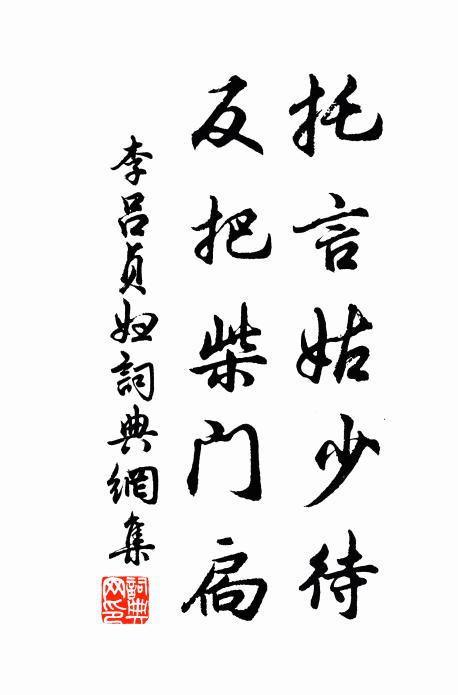 托言姑少待
反把柴门扃
李呂貞妇詞典網集
詞典
网印